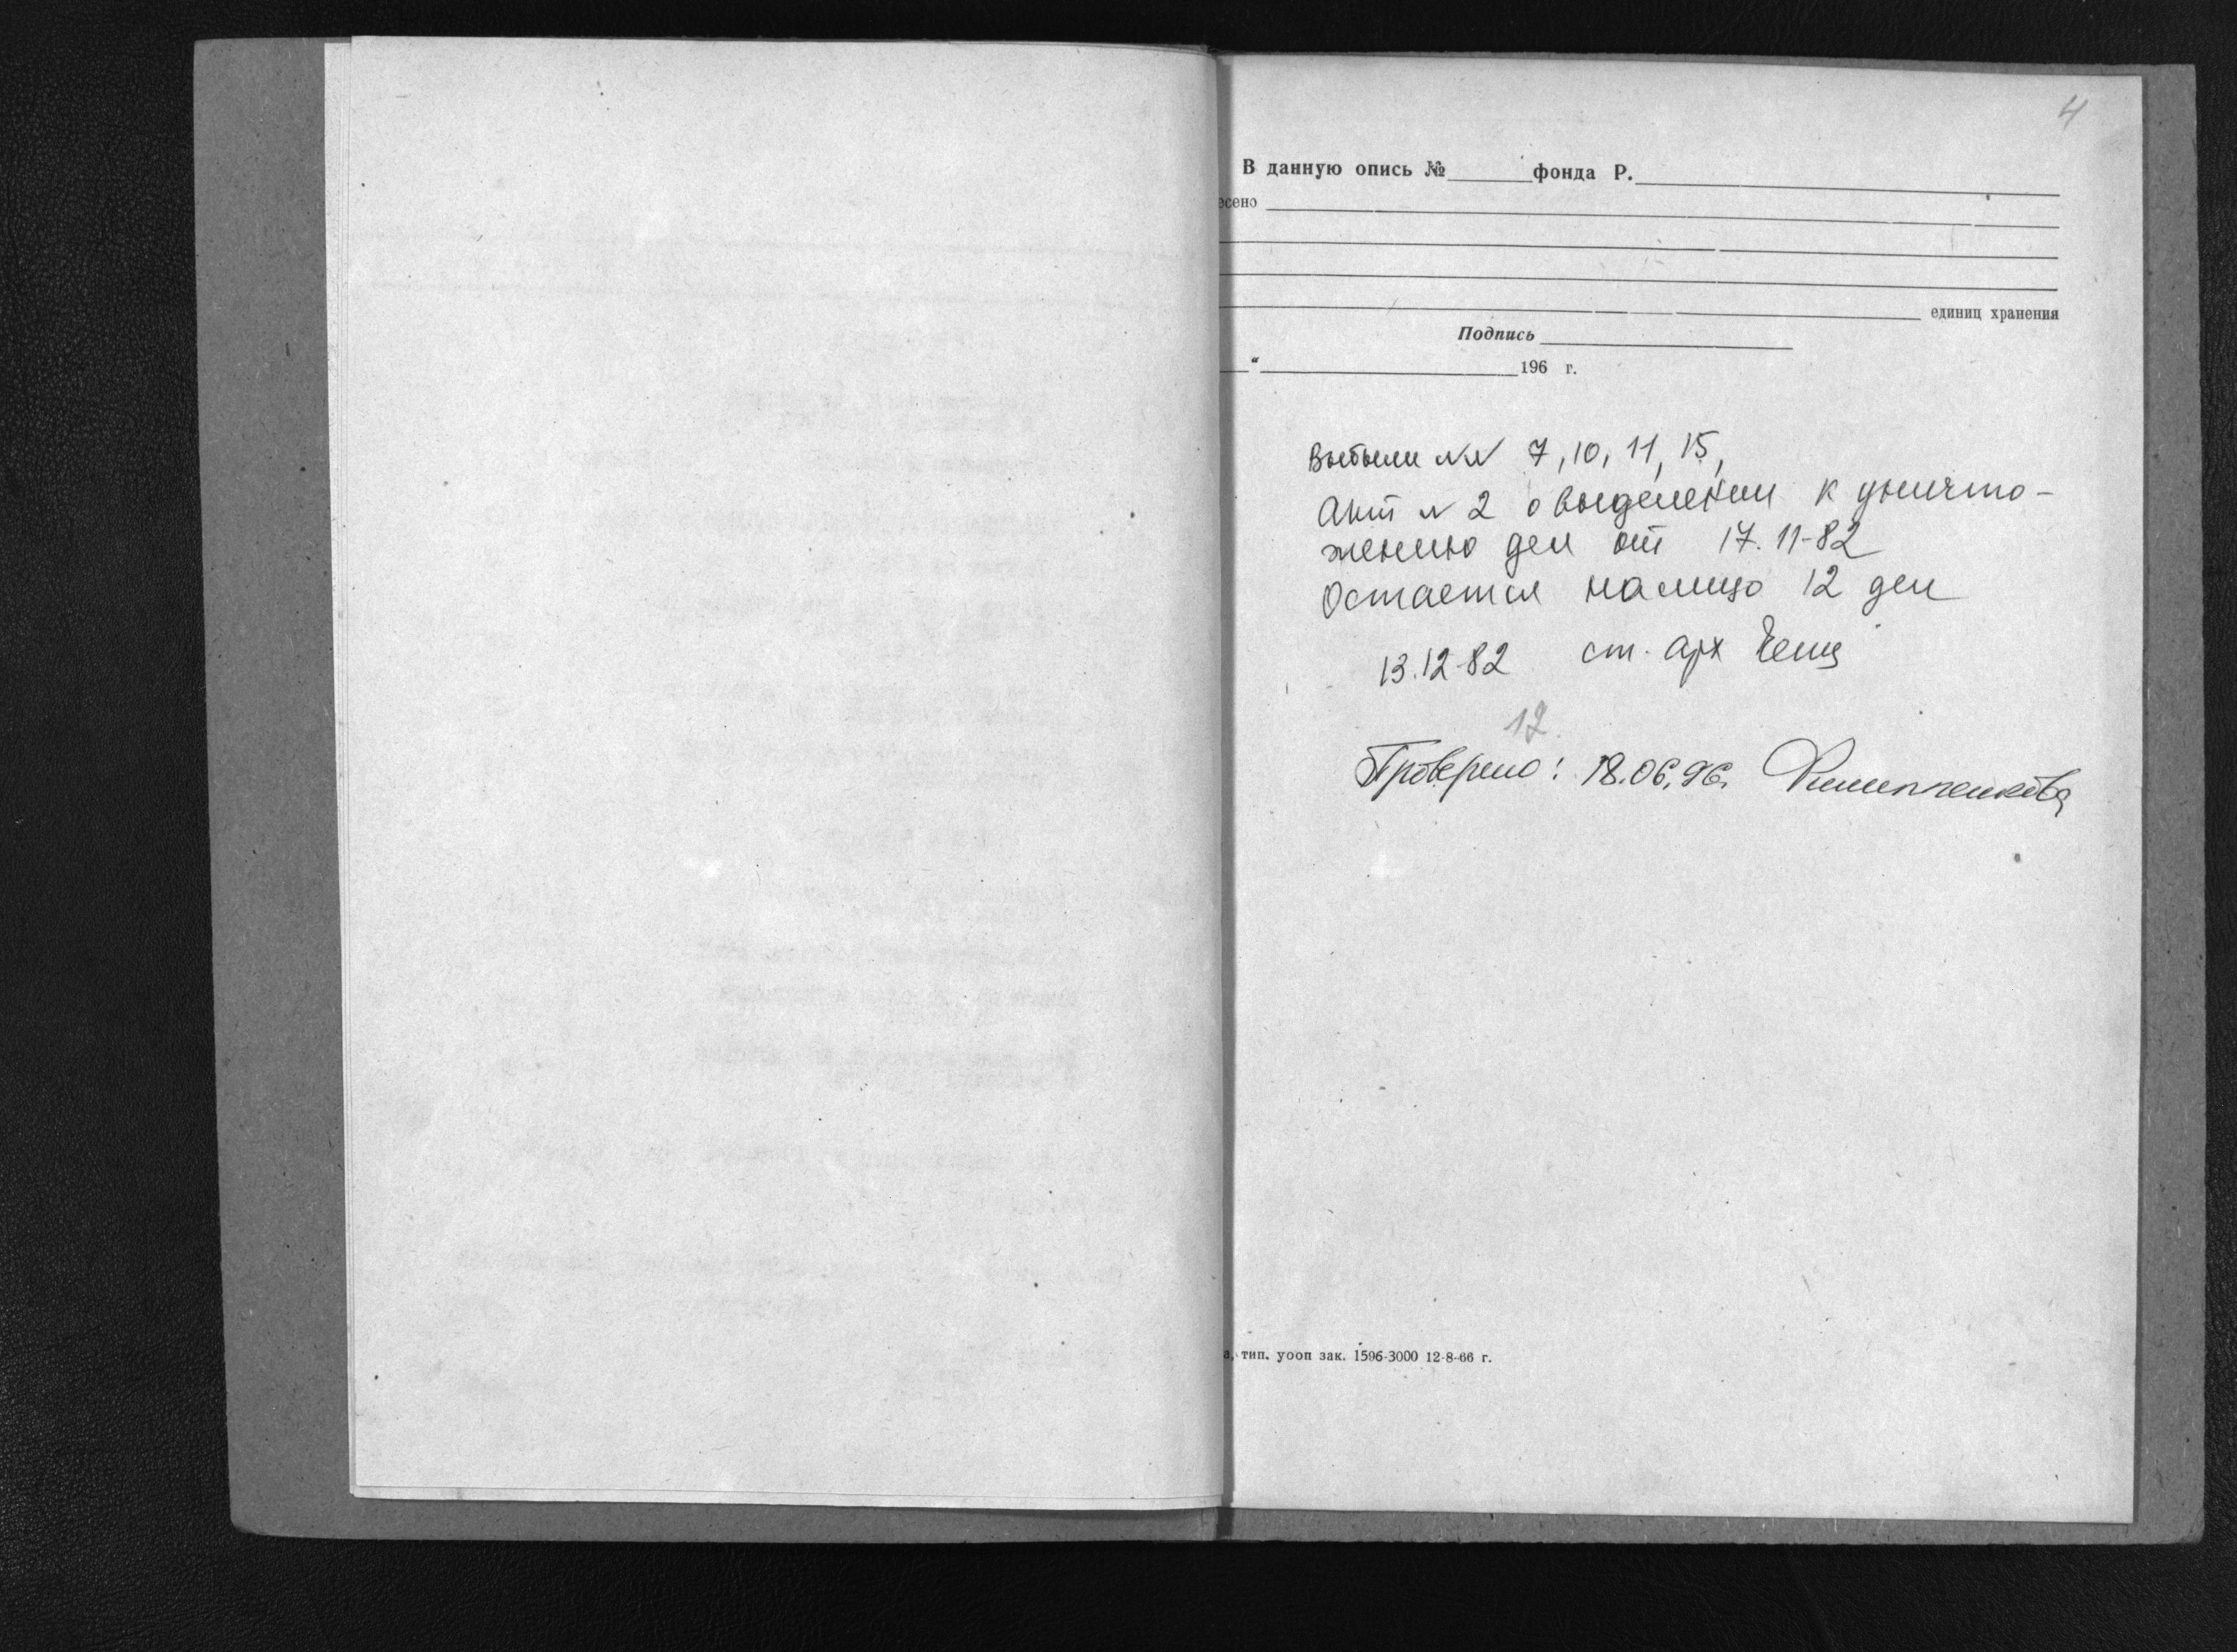 4
В данную опись №______фонда Р.
есено
единиц хранения
Подпись
“ 196 г.
Выбыли №№ 7, 10, 11, 15,
Акт № 2 о выделении к уничто-
жению дел от 17.11-82
Остается налицо 12 дел
13.12-82 ст. арх
12.
Проверено: 18.06.96.
а, тип. уооп зак. 1596-3000 12-8-66 г.